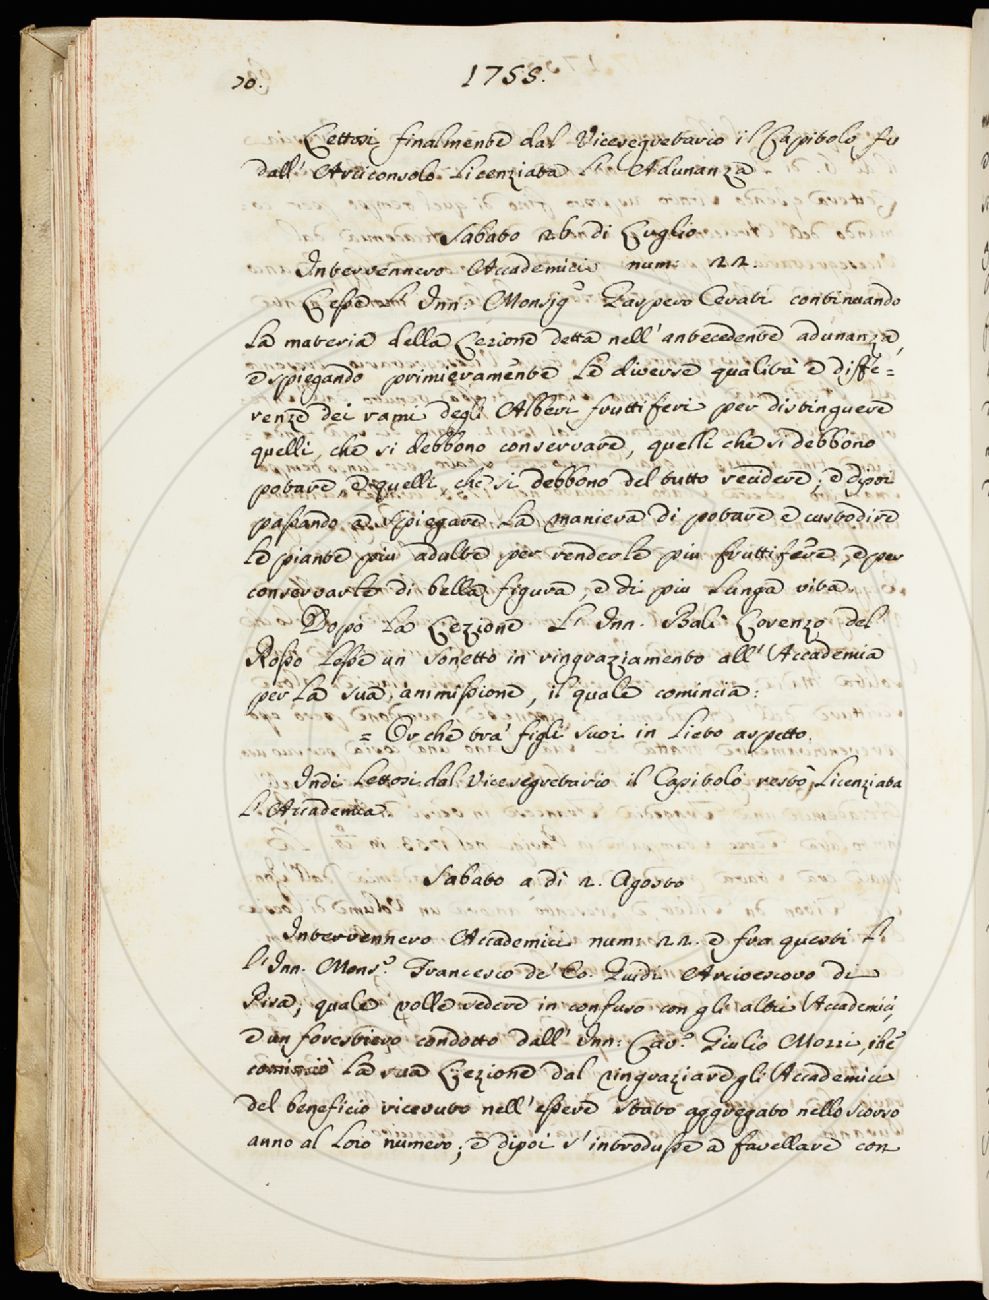 70.
1755.
Lettosi finalmente dal Vicesegretario il Capitolo fu
dall' Arciconsolo Licenziata L' Adunanza
Sabato 26. di Luglio
Intervennero Accademici num: 22.
Lesse L' Inn: Monsig.r Gaspero Cerati continuando
La materia della Lezione detta nell' antecedente adunanza,
e spiegando primieramente Le diverse qualità e diffe=
renze dei rami degli Alberi fruttiferi per distinguere
quelli, che si debbono conservare, quelli che si debbono
potare e quelli, che si debbono del tutto recidere; e dipoi
passando a spiegare La maniera di potare e custodire
le piante più adulte per renderle più fruttifere, e per
conservarle di bella figura, e di più Lunga vita.
Dopo La Lezione L' Inn. Balì Lorenzo del
Rosso Lesse un sonetto in ringraziamento all' Accademia
per La sua ammissione, il quale comincia:
= Or che tra' figli suoi in Lieto aspetto.
Indi Lettosi dal Vicesegretario il Capitolo restò Licenziata
L' Accademia.
Sabato a dì 2. Agosto
Intervennero Accademici num: 22. e fra questi L'
L' Inn. Mons.r Francesco de' Co. Guidi Arcivescovo di
Pisa, quale volle sedere in confuso con gli altri Accademici,
e un forestiero condotto dall' Inn: Cav.r Giulio Mozzi, che
cominciò La sua Lezione dal ringraziare gli Accademici
del beneficio ricevuto nell' essere stato aggregato nello scorso
anno al Loro numero; e dipoi s' introdusse a favellare con